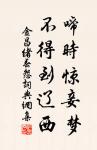 啼時惊妾梦
不得到辽西
金昌绪春怨词典网集